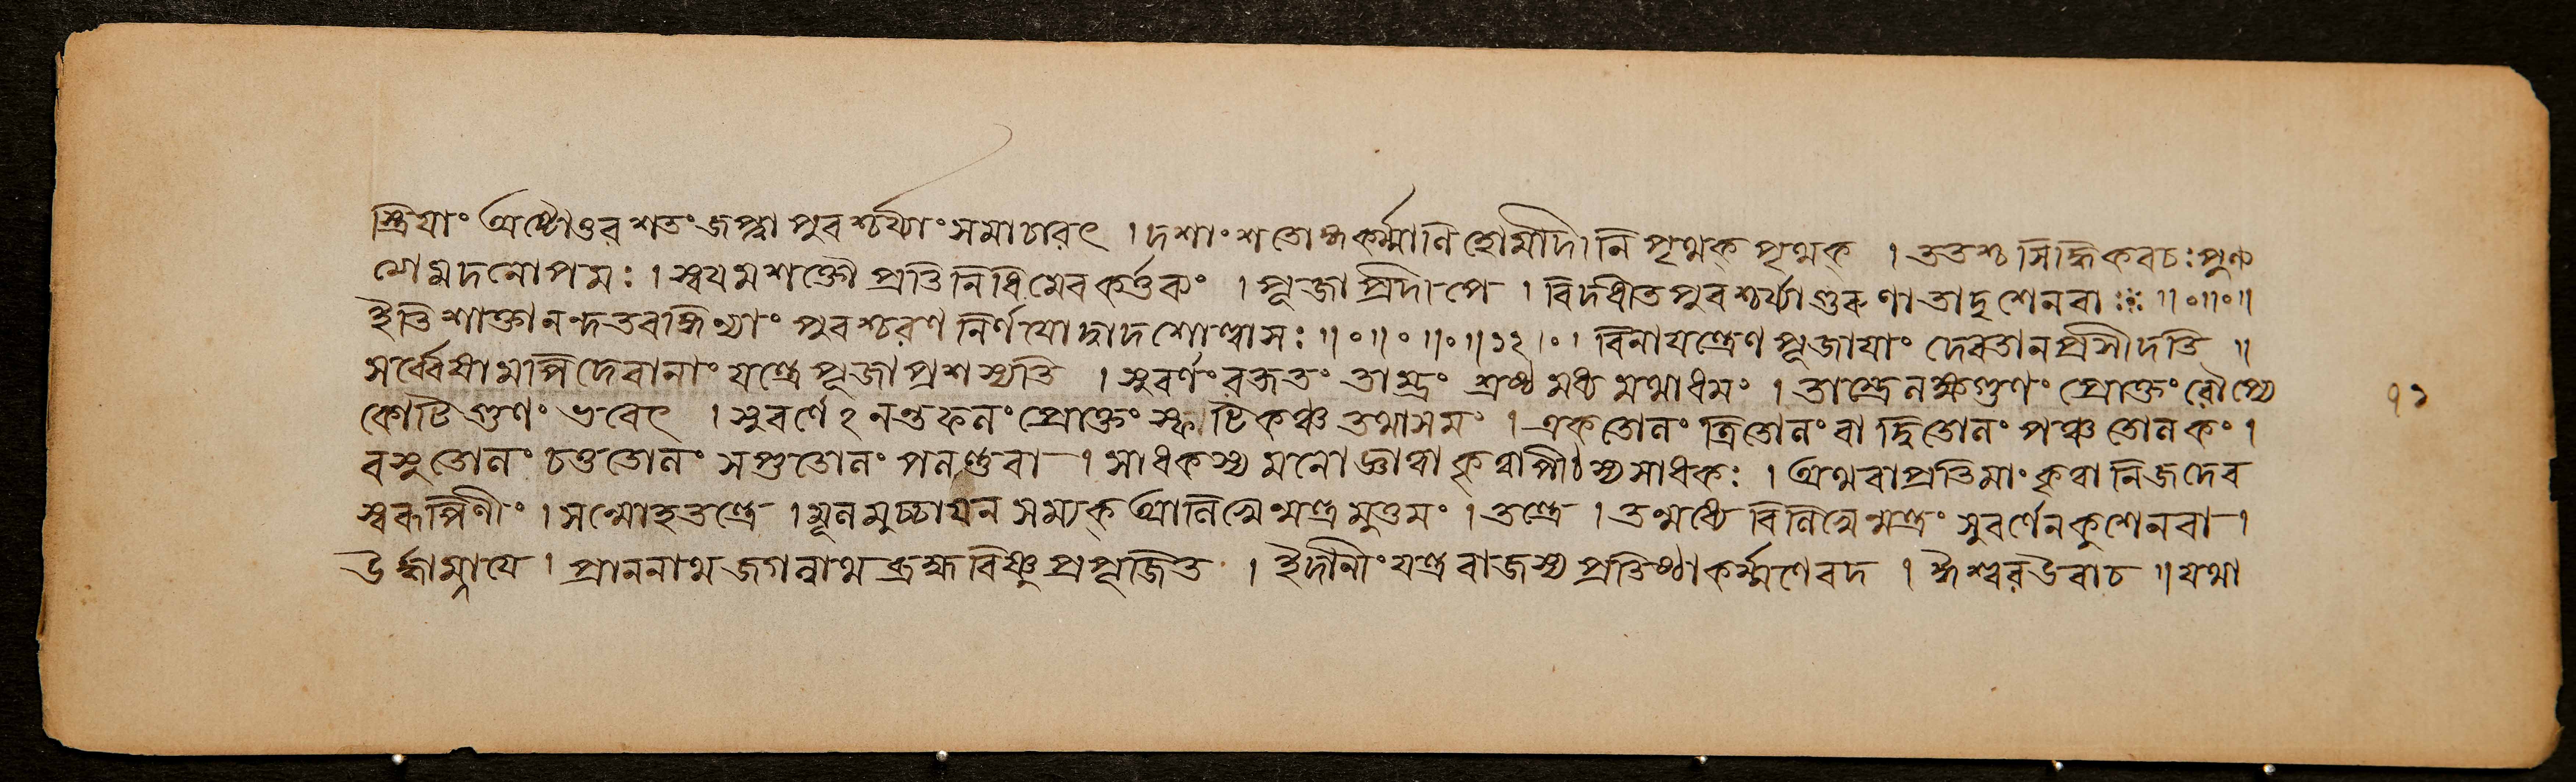 স্ত্রিযাং অষ্টোত্তর শতং জপ্ত্বা পুরশ্চর্য্যাং সমাচরেৎ । দশাংশতোহ্মকর্ম্মাণি হোমাদীনি পৃথক্ পৃথক্ । ততশ্চ সিদ্ধিকবচঃ পুণ্য
মেমদনোপমঃ । স্বযমশক্তৌ প্রতিনিধিমেবকর্ত্তৃকং । পূজাপ্রদীপে । বিদধীতপুরশ্চর্য্যাগুরুণাতাদৃশেনবা ॥০॥০॥
ইতিশাক্তানন্দতরঙ্গিণ্যাং পুরশ্চরণনির্ণযোদ্বাদশোল্লাসঃ ॥০॥০॥০॥১২।০। বিনাযন্ত্রেণপূজাযাং দেবতানপ্রসীদতি ॥
সর্ব্বেষামপিদেবানাং যন্ত্রেপূজাপ্রশস্যতি । সুবর্ণংরজতং তাম্রং শ্রেষ্ঠমধ্যমথাধমং । তাম্রেলক্ষগুণং প্রোক্তং রৌপ্যে
কোটিগুণং ভবেৎ । সুবর্ণেঽনন্তফলং প্রোক্তং স্ফাটিকঞ্চতথাসমং । একতোলং ত্রিতোলংবা দ্বিতোলং পঞ্চতোলকং ।
বসুতোলং চতুতোলং সপ্ততোলং পলন্তুবা । সাধকস্য মনোজ্ঞাত্বা কৃত্বাপীঠস্যসাধকঃ । অথবাপ্রতিমাংকৃত্বা নিজদেব
স্বরূপিণীং । সম্মোহতন্ত্রে । মূলমুচ্চার্যন সম্যক্ আলিখেদ্যন্ত্রমুত্তমং । তন্ত্রে । তন্মধ্যে বিলিখেদ্যন্ত্রং সুবর্ণেনকুশেনবা ।
ঊর্দ্ধাম্নাযে । প্রাননাথজগন্নাথব্রহ্মবিষ্ণুপ্রপূজিত । ইদানীং যন্ত্ররাজস্য প্রতিষ্ঠাকর্ম্মণেবদ । ঈশ্বরউবাচ ॥ যথা
৭১